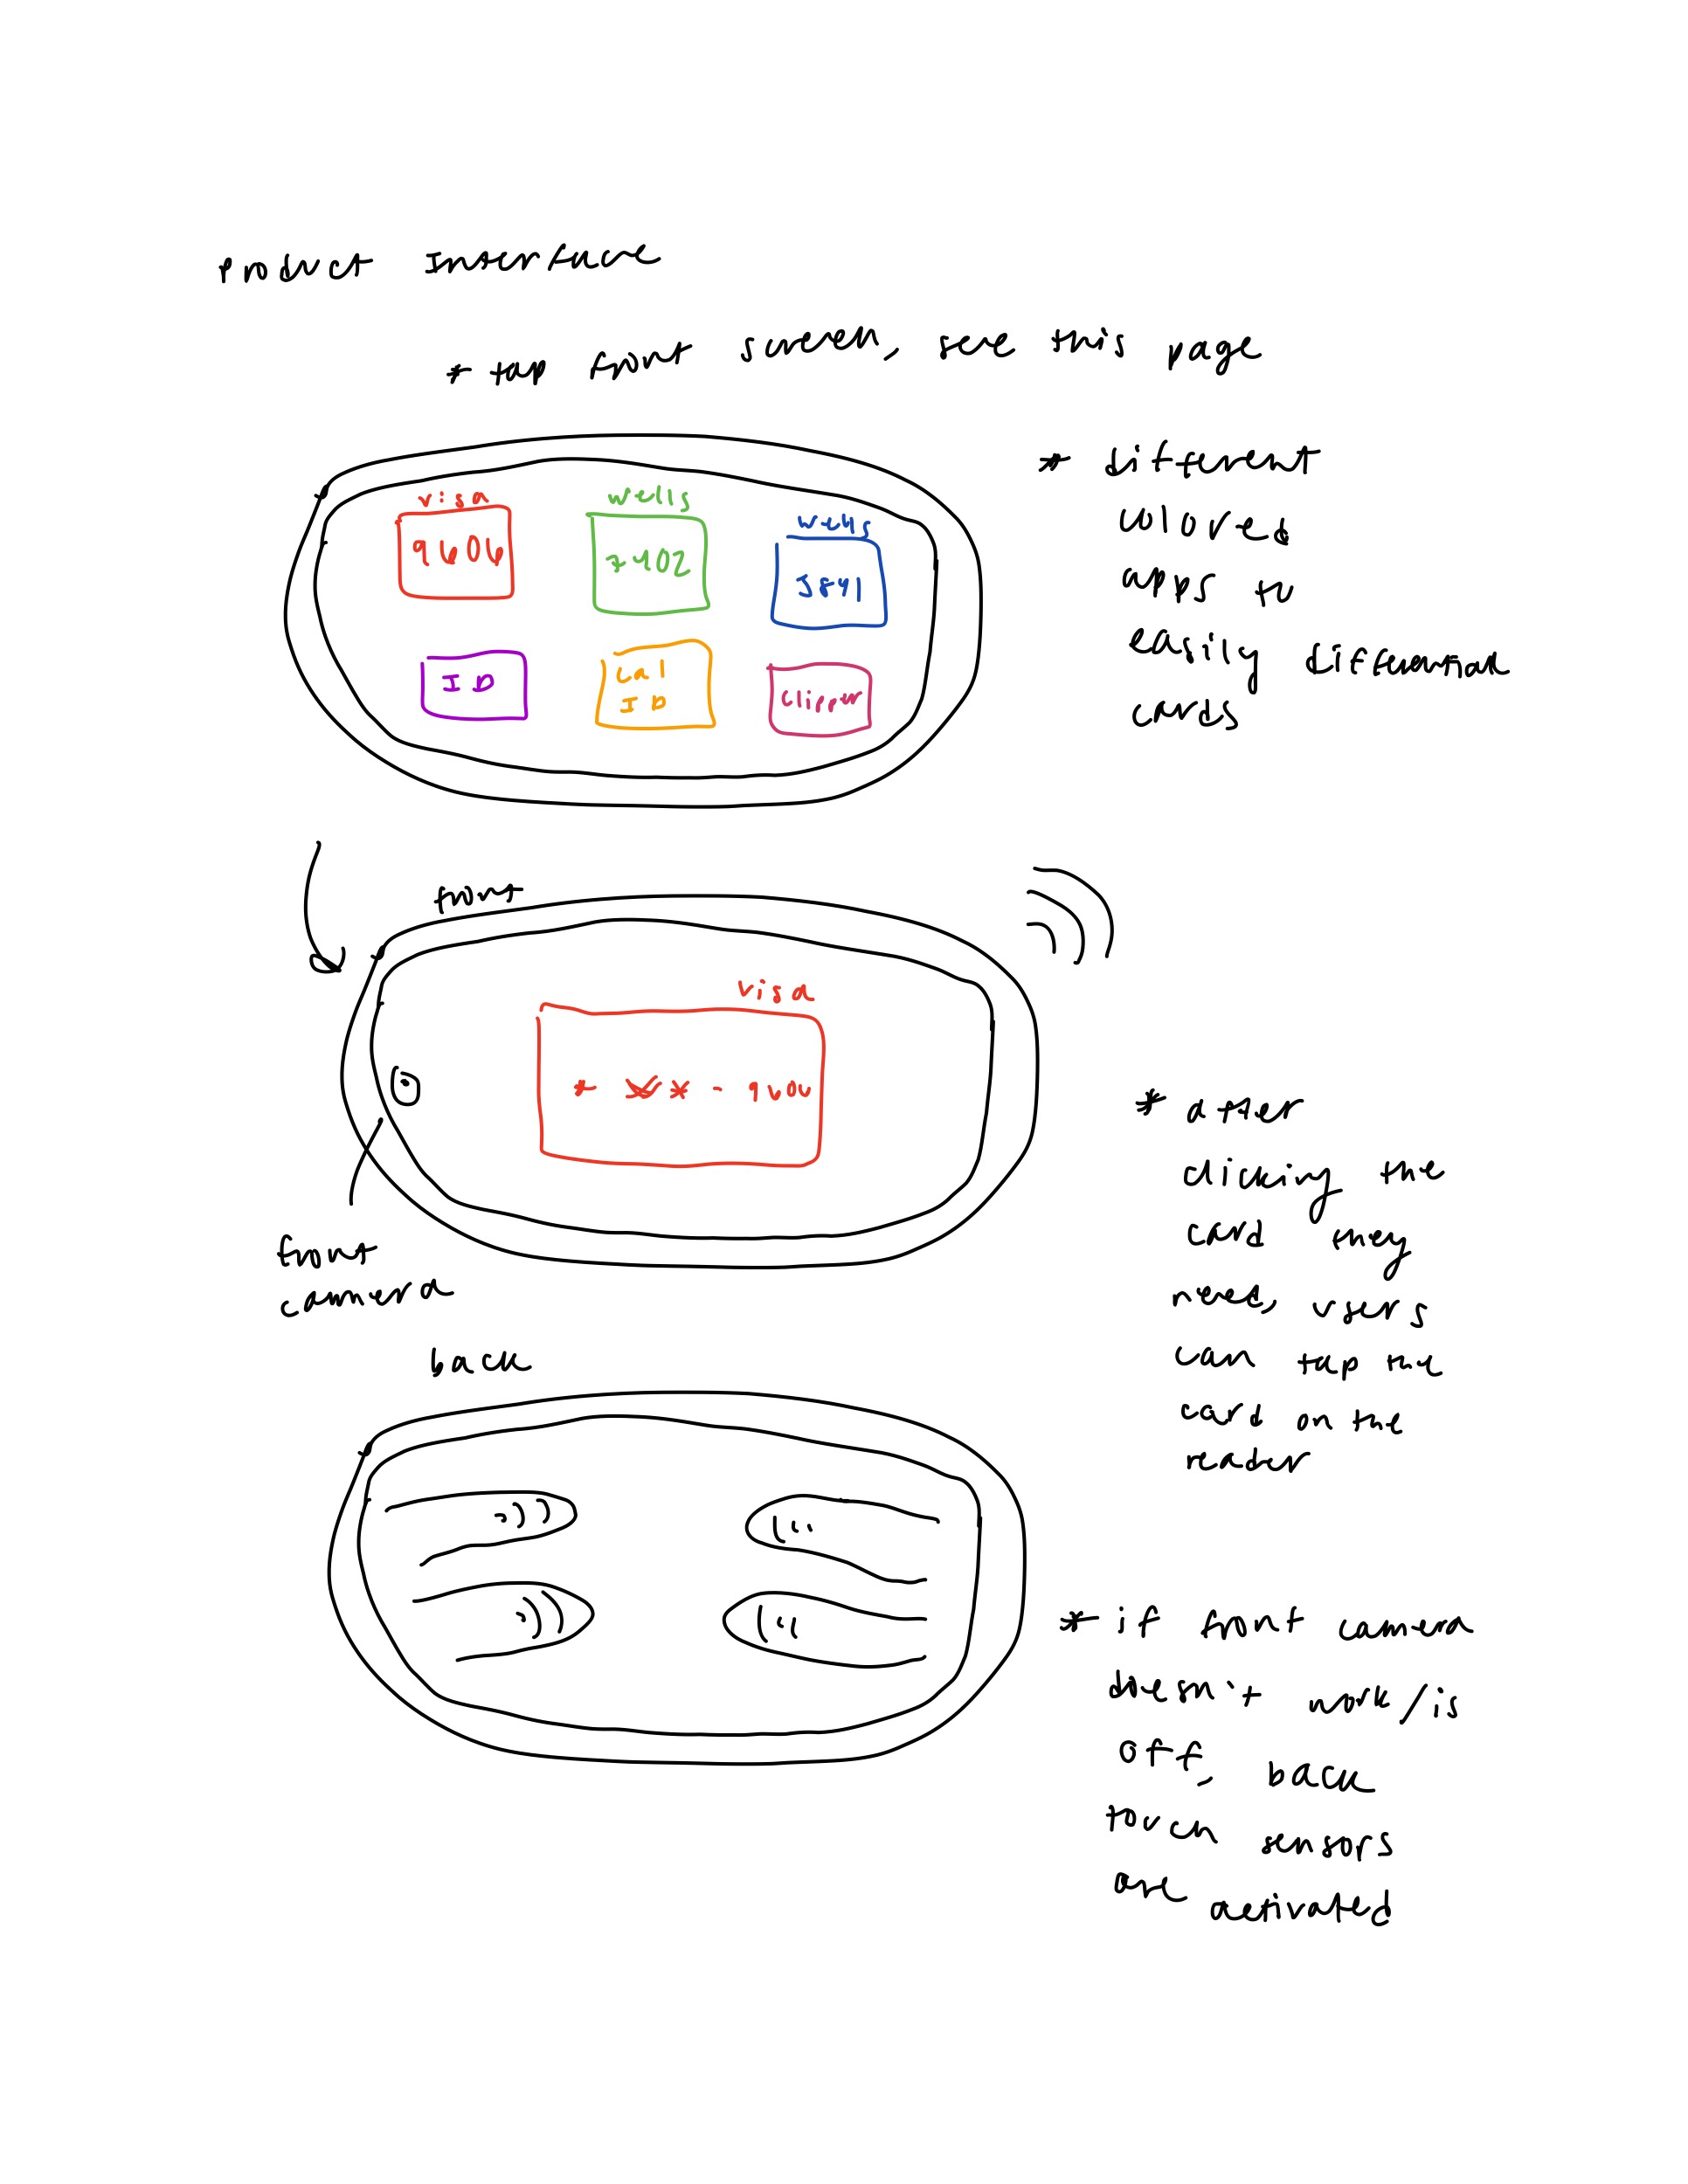 Product Interface
* tap front screen, see this page
visa
9606
wells
7402
wells
5841
ID
Cal
ID
Clipper
* different
colored
apps to
easily
cards
front
visa
* *** - 9606
front
camera
* after
clicking the
card they
need, users
can tap the
card on the
reader
back
* if front camera
doesn't work/is
off, back
touch sensors
are activated